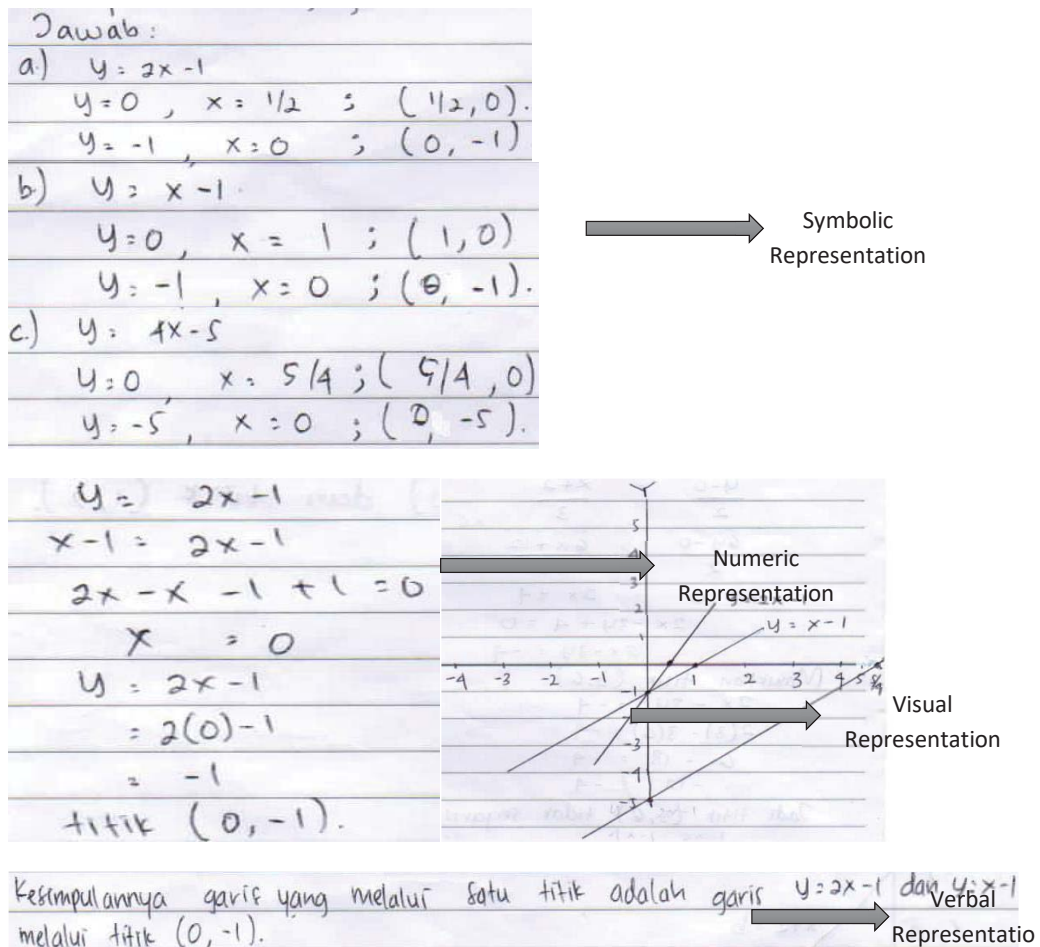 Jawab:
a.) y = 2x - 1
y = 0 , x = 1/2 ; (1/2, 0).
y = -1 , x = 0 ; (0, -1)
b.) y = x - 1.
y = 0, x = 1 ; (1, 0)
y = -1, x = 0 ; (0, -1).
c.) y = 4x - 5
y = 0, x = 5/4 ; (5/4, 0)
y = -5, x = 0 ; (0, -5).
Symbolic
Representation
y = 2x - 1
x - 1 = 2x - 1
2x - x - 1 + 1 = 0
x = 0
y = 2x - 1
= 2(0) - 1
= -1
titik (0, -1).
Numeric
Representation
y = x - 1
5
4
3
2
1
-4 -3 -2 -1 2 3 4 5
-1
-3
-4
-5
Visual
Representation
Kesimpulannya garis yang melalui satu titik adalah garis y = 2x - 1 dan y = x - 1
melalui titik (0, -1).
Verbal
Representatio